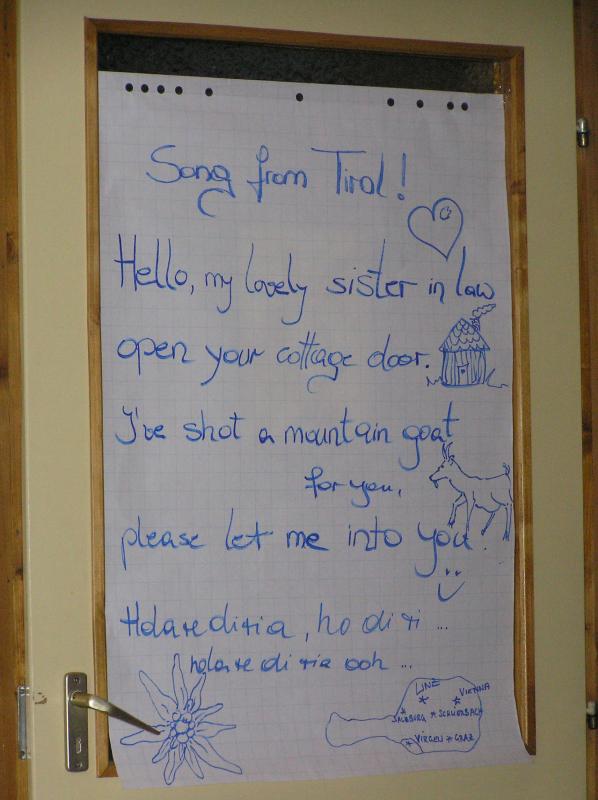 Song from Tirol!
Hello, my lovely sister in law
open your cottage door.
I've shot a mountain goat
for you,
please let me into you.
Holareditia, ho di ri ...
holare di ria ooh ...
LINZ
VIENNA
SALZBURG
SCHLIERBACH
VIRGEN
GRAZ